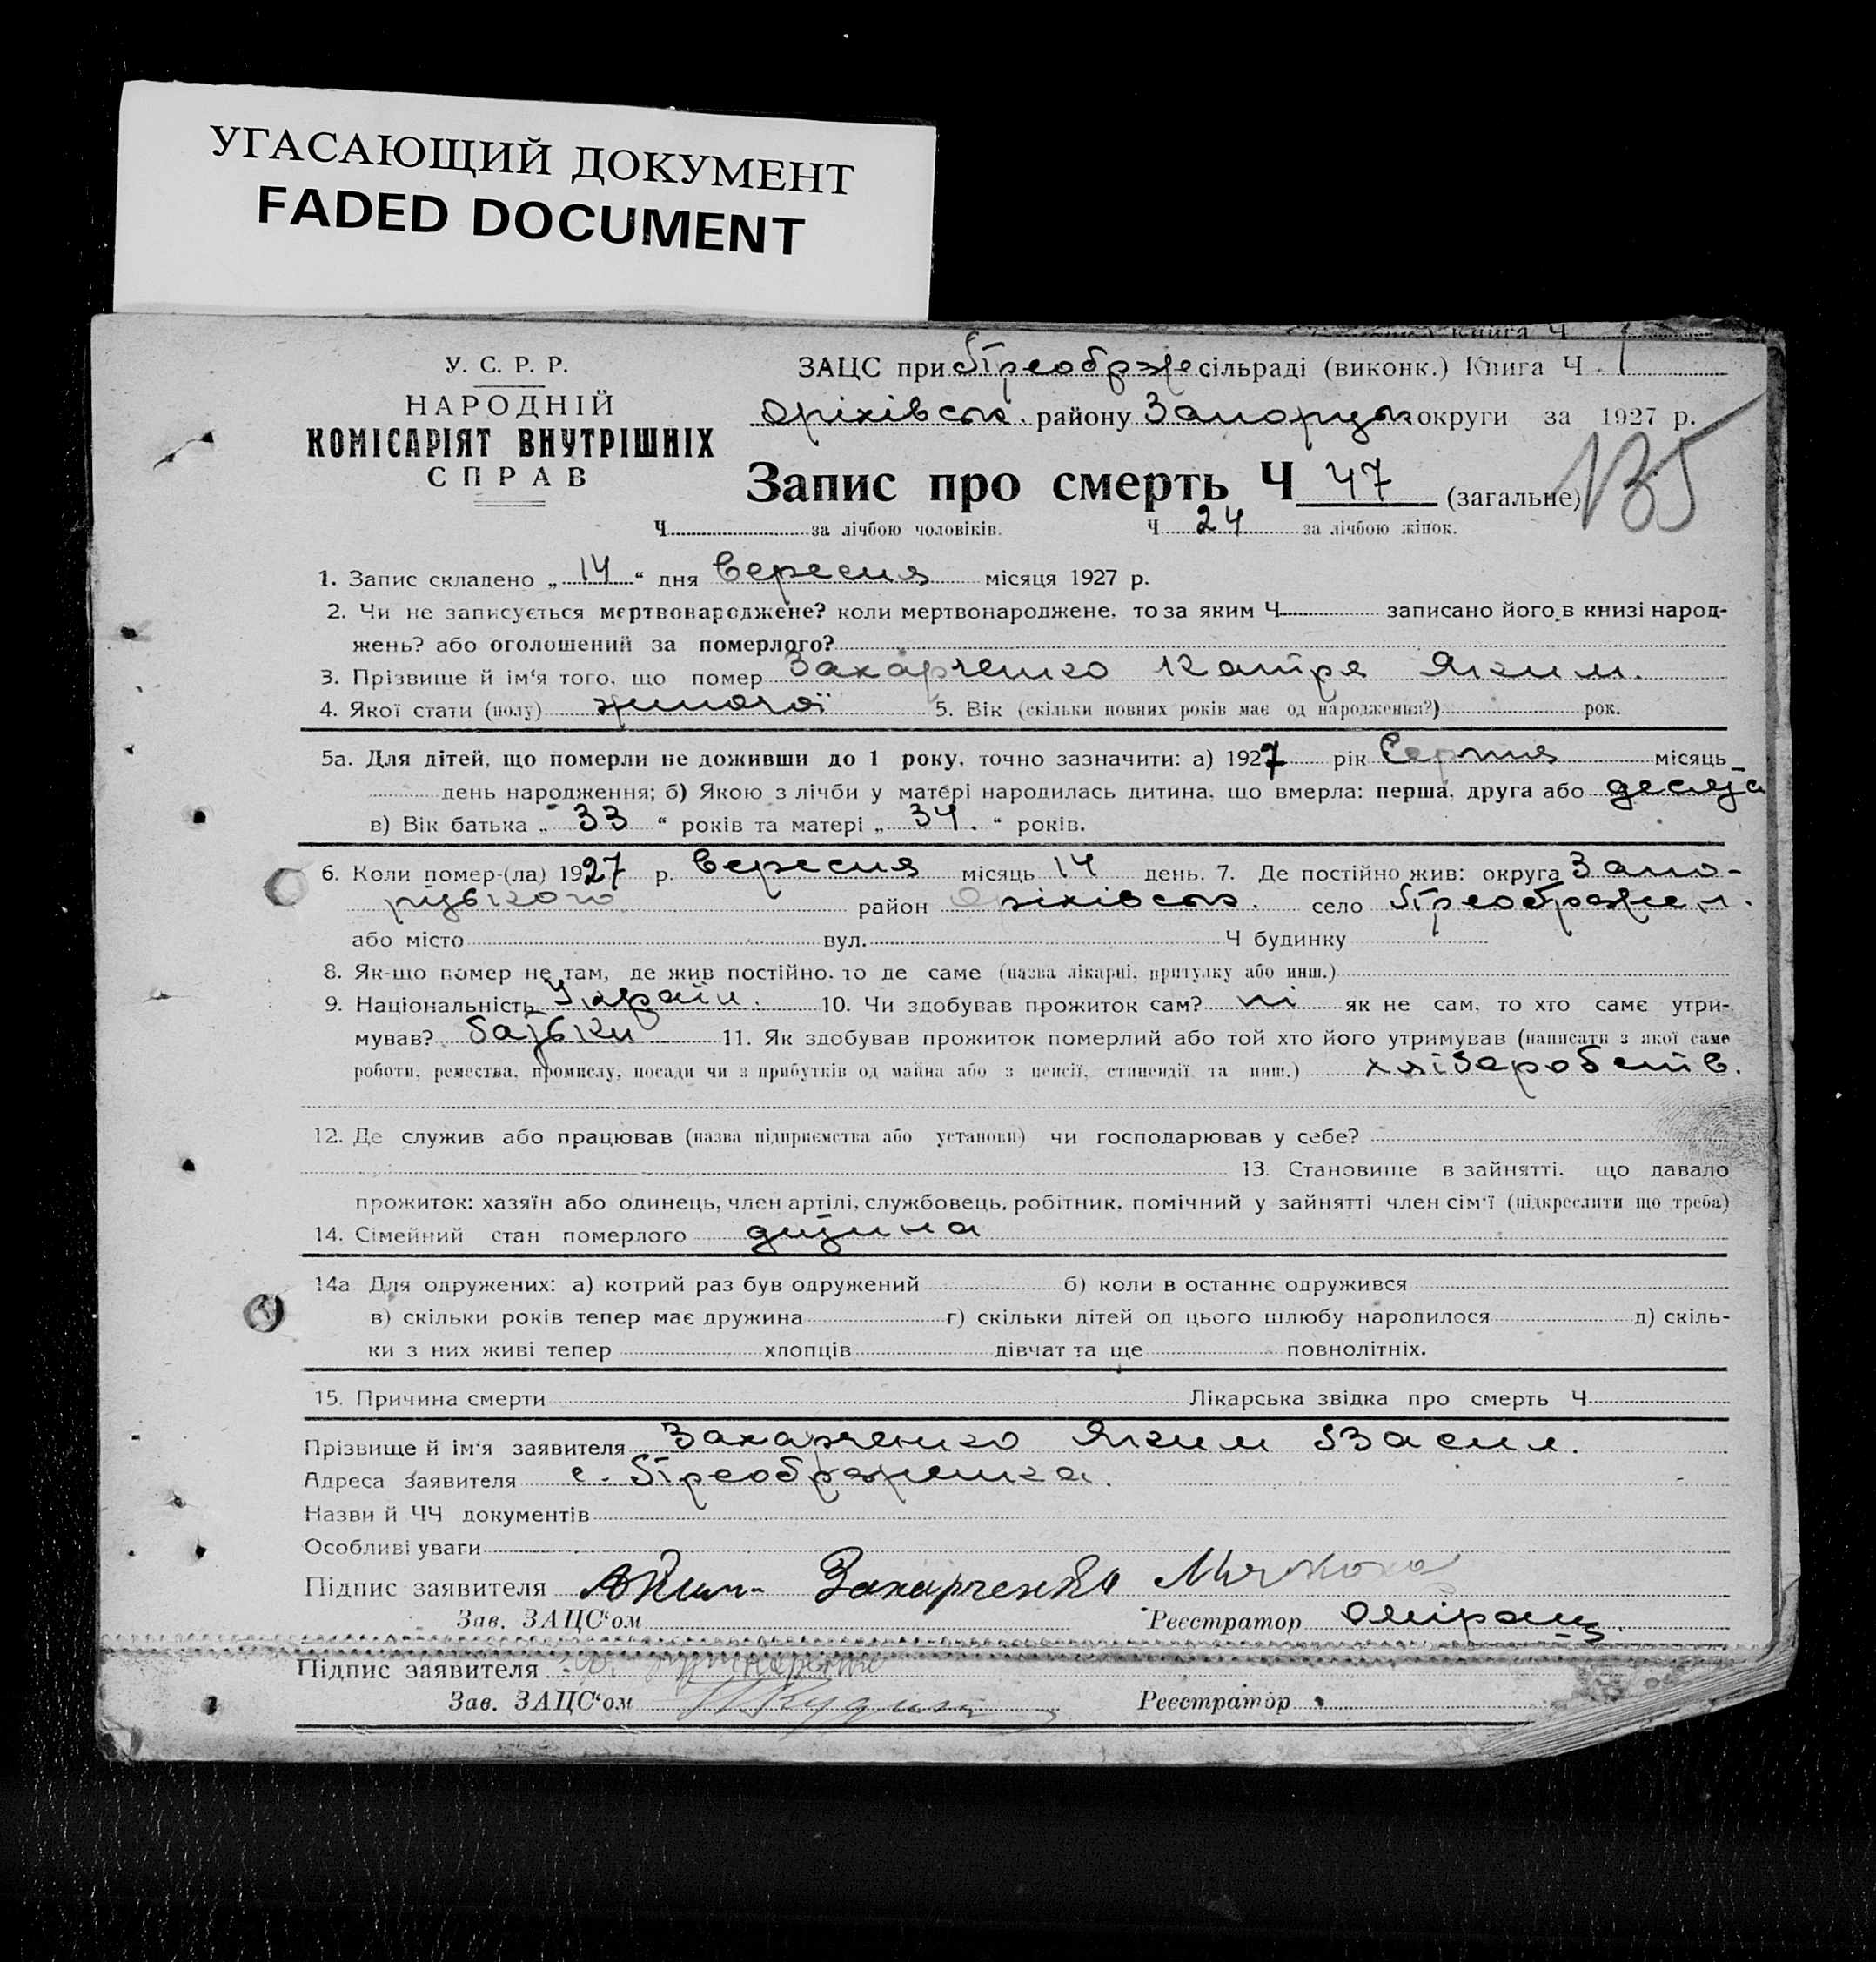 УГАСАЮЩИЙ ДОКУМЕНТ
FADED DOCUMENT
книга Ч
У. С. Р. Р.
НАРОДНІЙ
КОМІСАРІЯТ ВНУТРІШНІХ
СПРАВ
ЗАЦС при Преображе сільраді (виконк.) Книга Ч. 1
Оріхівськ. району Запоріжськ округи за 1927 р.
135
Запис про смерть Ч 47 (загальне)
Ч за лічбою чоловіків. Ч 24 за лічбою жінок.
1. Запис складено „ 14 “ дня Вересня місяця 1927 р.
2. Чи не записується мертвонароджене? коли мертвонароджене, то за яким Ч записано його в книзі народ-
жень? або оголошений за померлого?
3. Прізвище й ім'я того, що помер Захарченко Катря Яким.
4. Якої стати (полу) жиночої 5. Вік (скільки повних років має од народження?) рок.
5а. Для дітей, що померли не доживши до 1 року, точно зазначити: а) 1927 рік Серпня місяць
день народження; б) Якою з лічби у матері народилась дитина, що вмерла: перша, друга або десята
в) Вік батька „ 33 “ років та матері „ 34. “ років.
6. Коли помер-(ла) 1927 р. Вересня місяць 14 день. 7. Де постійно жив: округа Запо-
ріцького район Оріхівськ. село Преображен.
або місто вул. Ч будинку
8. Як-що помер не там, де жив постійно, то де саме (назва лікарні, притулку або инш.)
9. Національність Україн. 10. Чи здобував прожиток сам? ні як не сам, то хто саме утри-
мував? батьки 11. Як здобував прожиток померлий або той хто його утримував (написати з якої саме
роботи, ремества, промислу, посади чи з прибутків од майна або з пенсії, стипендії та инш.) хліборобств.
12. Де служив або працював (назва підприємства або установи) чи господарював у себе?
13. Становище в зайнятті, що давало
прожиток: хазяїн або одинець, член артілі, службовець, робітник, помічний у зайнятті член сім'ї (підкреслити що треба)
14. Сімейний стан померлого дитина
14а Для одружених: а) котрий раз був одружений б) коли в останнє одружився
в) скільки років тепер має дружина г) скільки дітей од цього шлюбу народилося д) скіль-
ки з них живі тепер хлопців дівчат та ще повнолітніх.
15. Причина смерти Лікарська звідка про смерть Ч
Прізвище й ім'я заявителя Захарченко Яким Васил.
Адреса заявителя с. Преображенка.
Назви й ЧЧ документів
Особливі уваги
Підпис заявителя Захарченко
Зав. ЗАЦС'ом Реєстратор
Підпис заявителя
Зав. ЗАЦС'ом Реєстратор